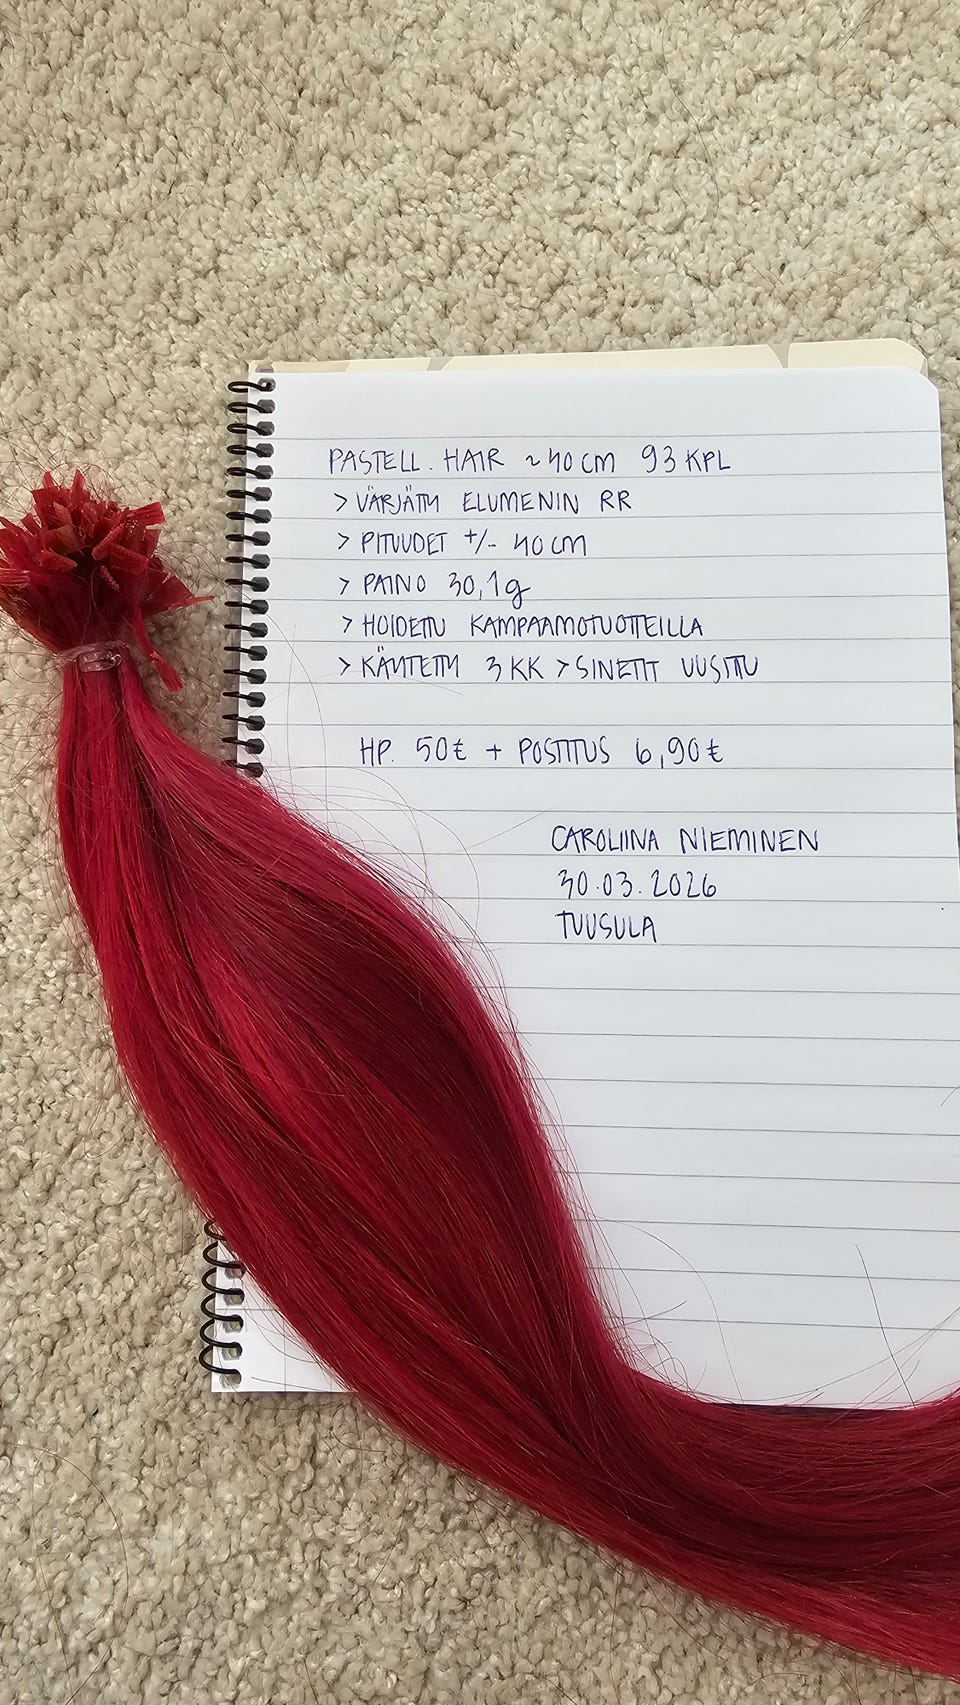 PASTELL. HAIR ~40 CM 93 KPL
> VÄRJÄTTY ELUMENIN RR
> PITUUDET +/- 40 CM
> PAINO 30,1g
> HOIDETTU KAMPAAMOTUOTTEILLA
> KÄYTETTY 3 KK > SINETIT UUSITTU
HP. 50€ + POSTITUS 6,90€
CAROLIINA NIEMINEN
30.03.2026
TUUSULA